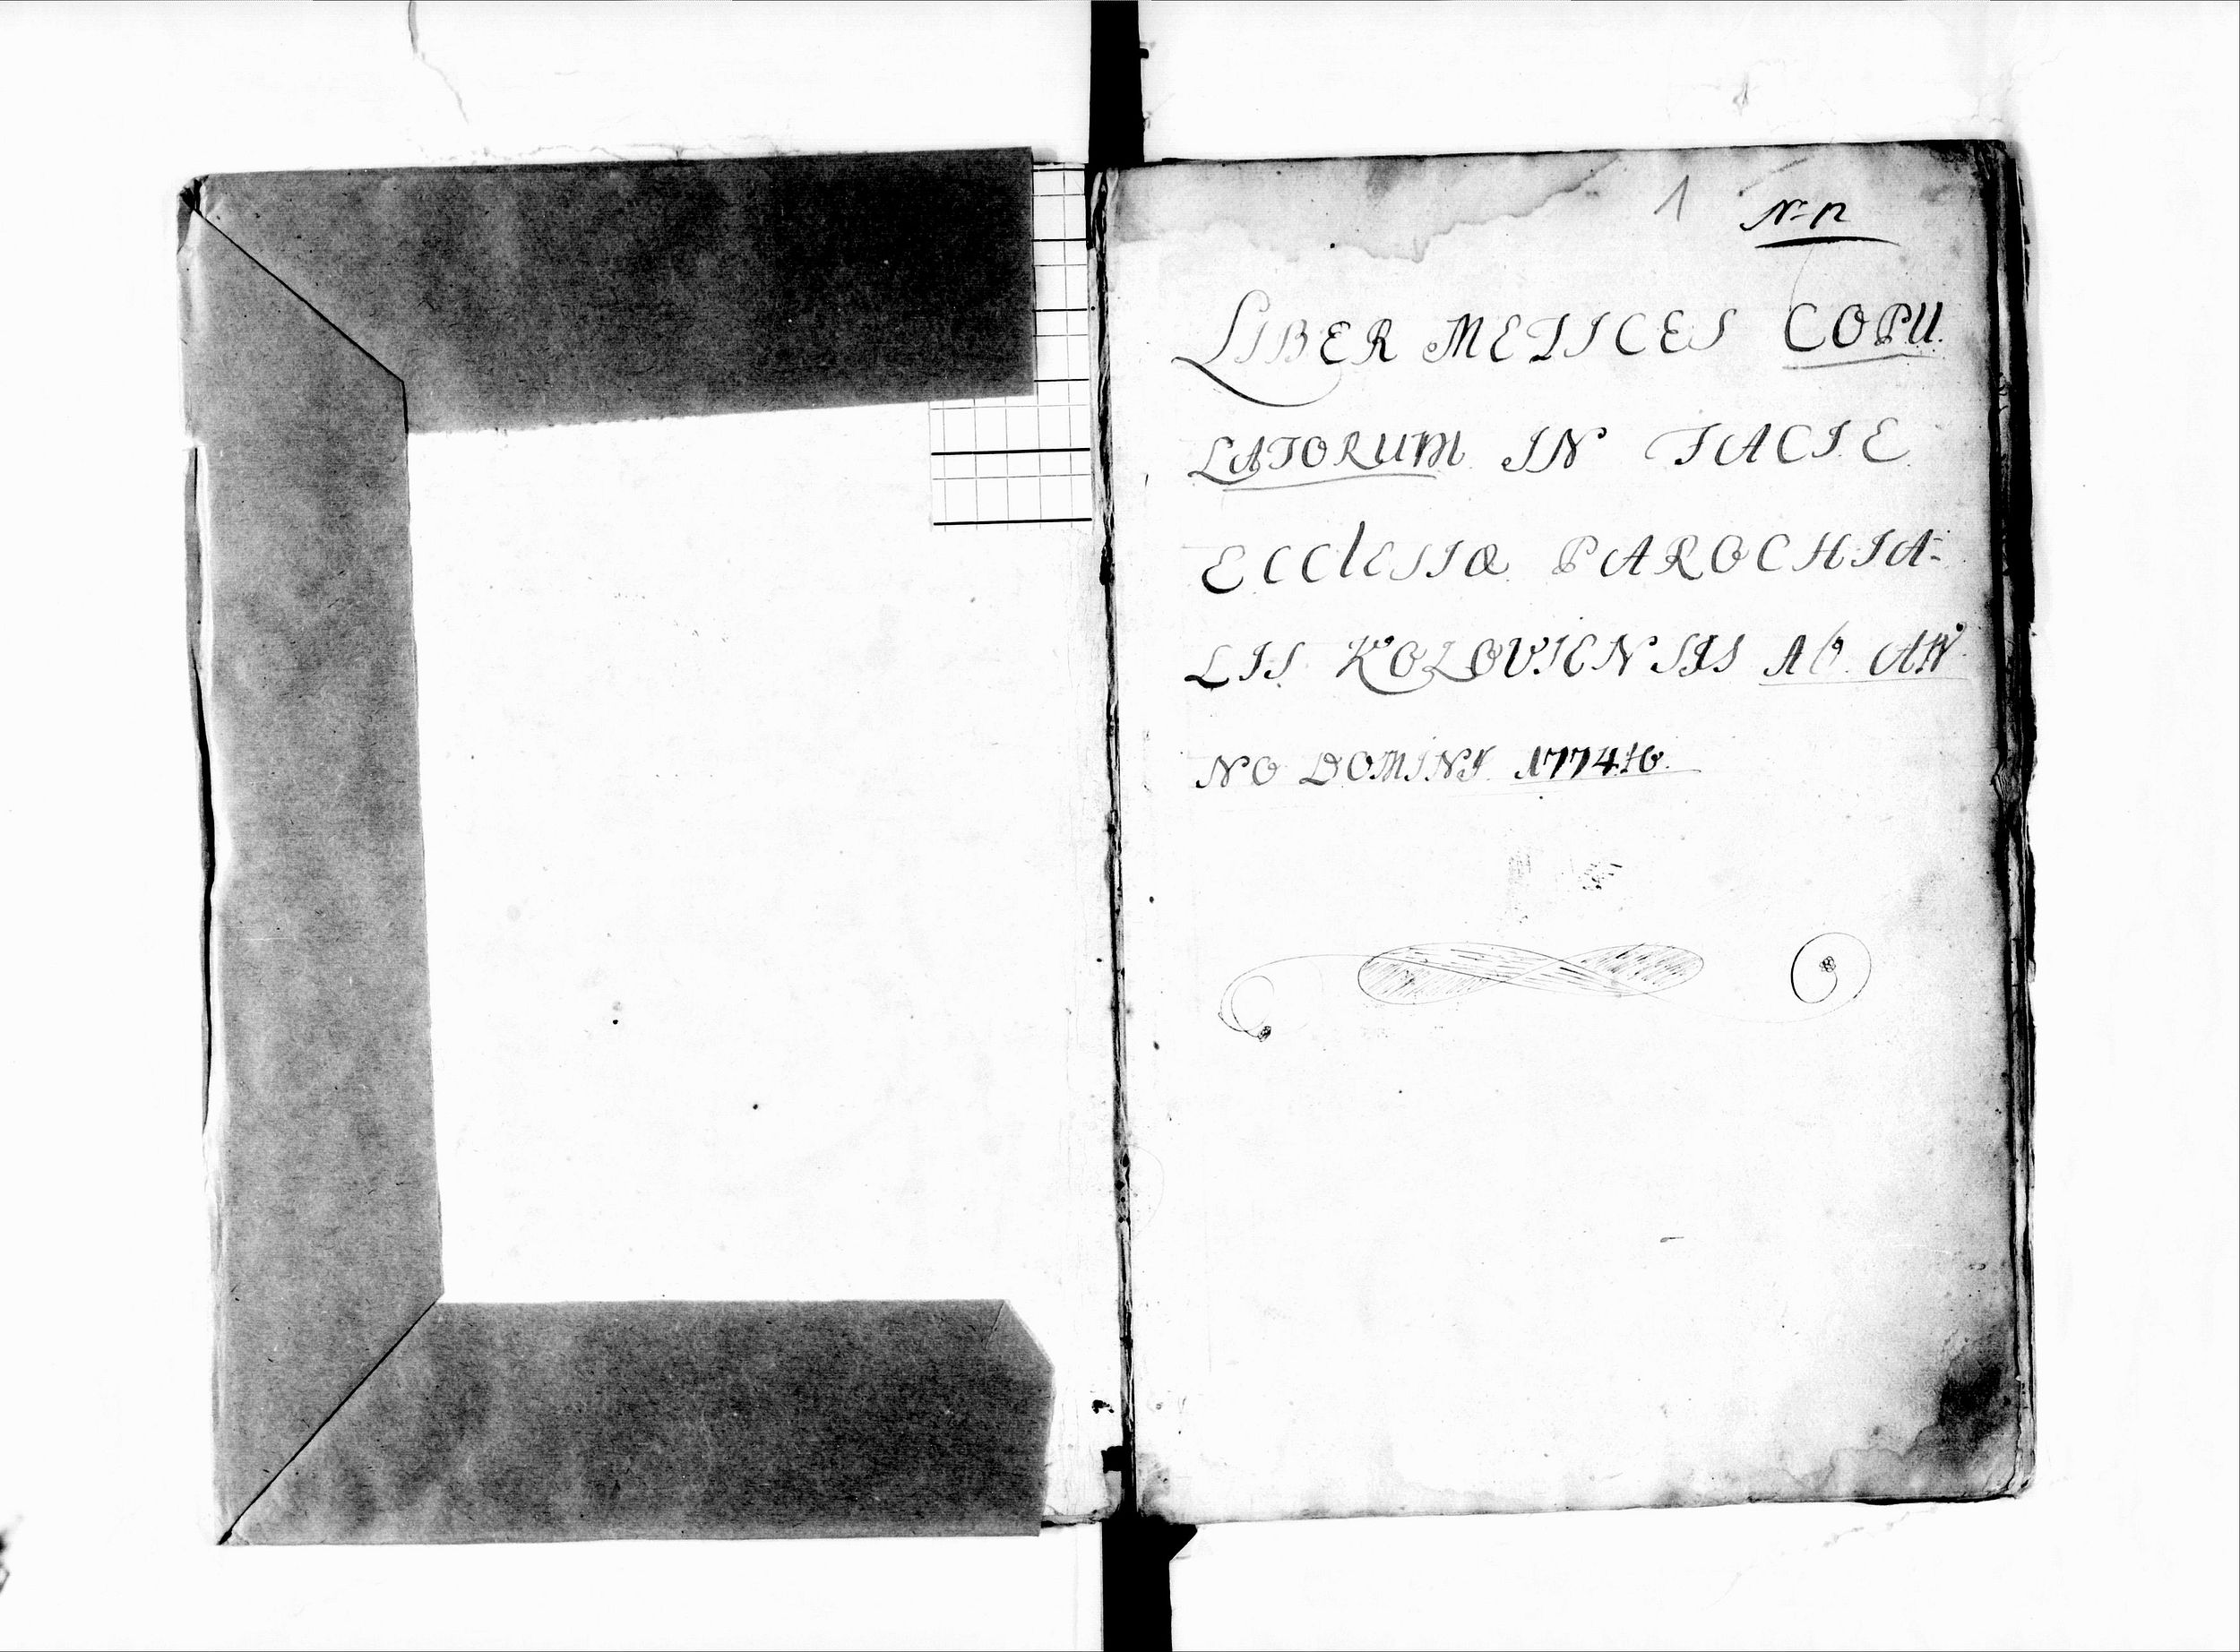 1 N-12
LIBER METICES COPU
LATORUM IN FACIE
ECClESIÆ PAROCHIA-
LIS KOZOVIENSIS AB AN
NO DOMINI